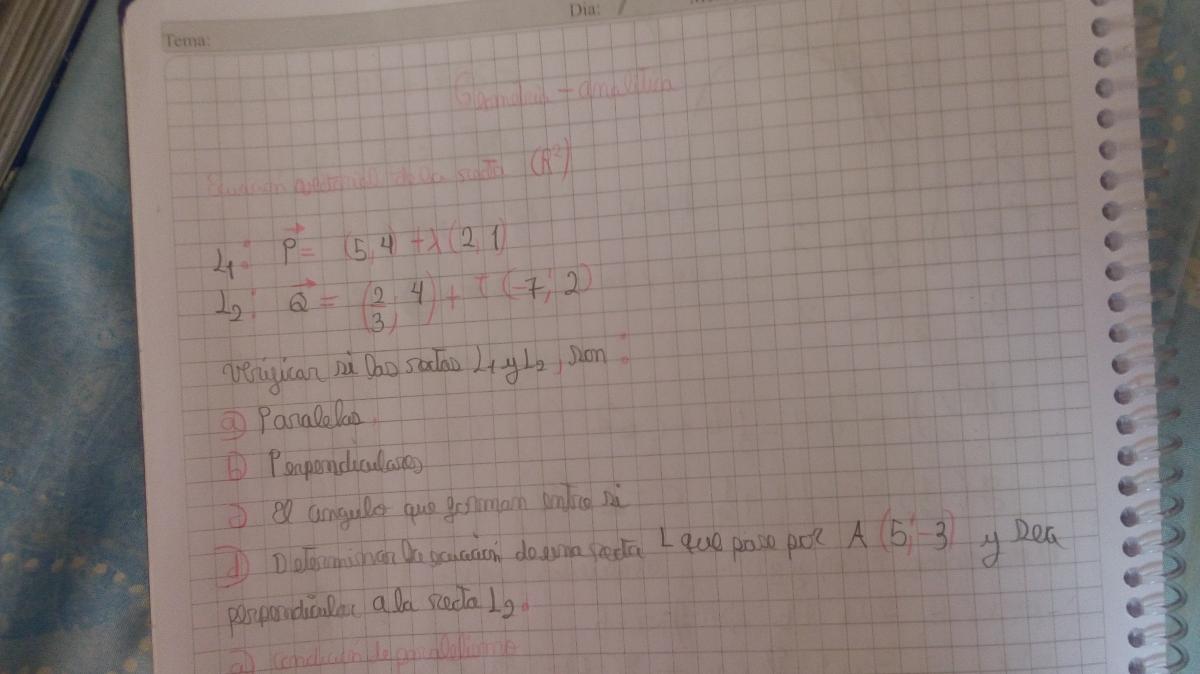 Dia:
Tema:
Geometria - analítica
Ecuación vectorial de la recta (R²)
L₁: P⃗ = (5, 4) + λ (2, 1)
L₂: Q⃗ = (2/3, 4) + τ (-7; 2)
Verificar si las rectas L₁ y L₂, son:
a) Paralelas.
b) Perpendiculares
c) El angulo que forman entre si
d) Determinar la ecuación de una recta L que pase por A (5; -3) y sea
perpendicular a la recta L₂.
a) condición de paralelismo